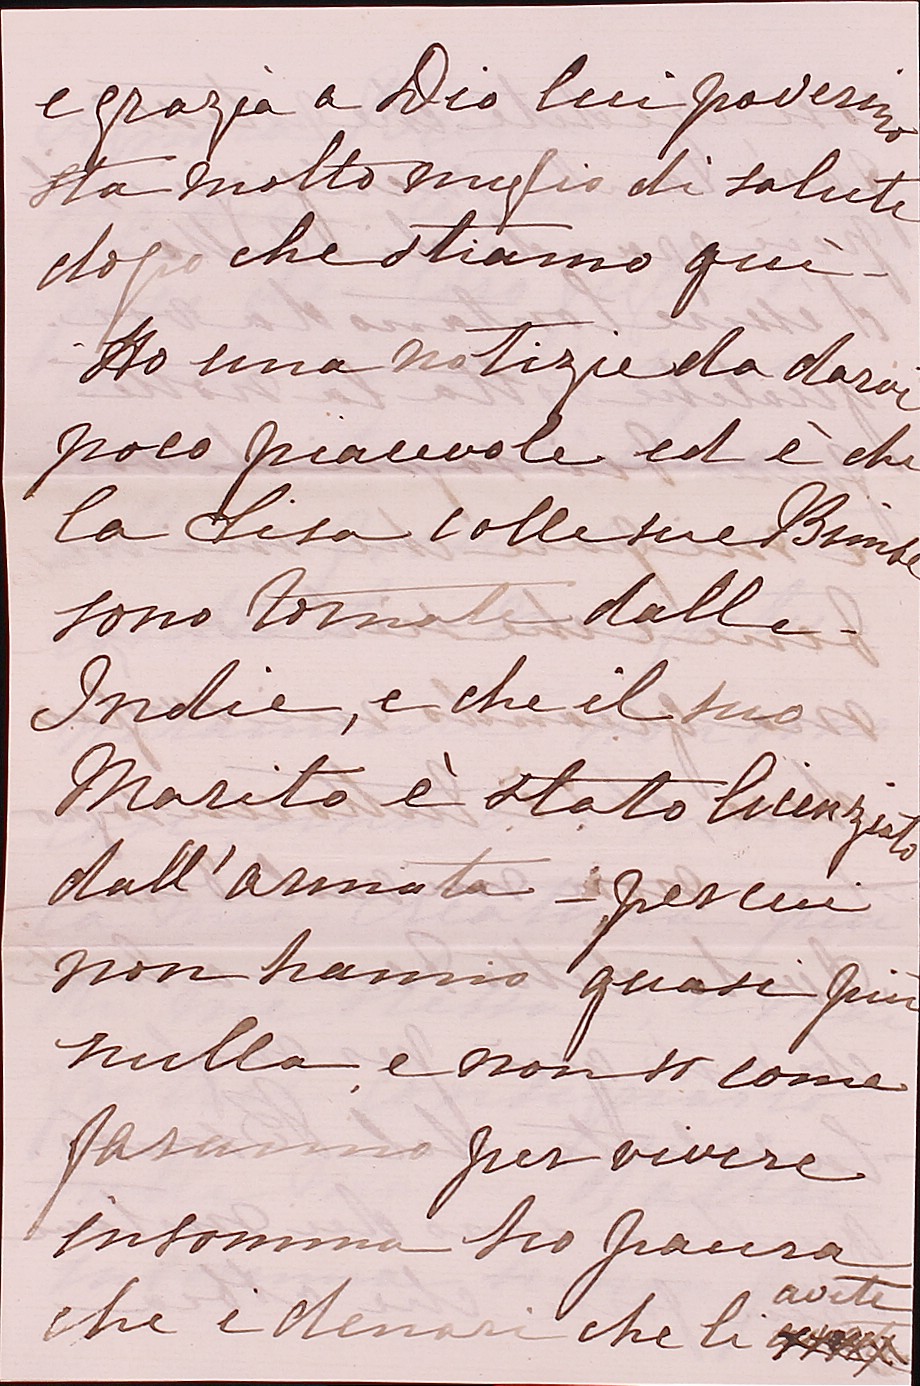 e grazia a Dio lui poverino
sta molto meglio di salute
dopo che stiamo quì -
Ho una notizie da darvi
poco piacevole ed è che
la Lisa colle sue Bimbe
sono tornate dalle
Indie, e che il suo
Marito è stato licenziato
dall'armata - per cui
non hanno quasi più
nulla, e non so come
faranno per vivere
insomma ho paura
che i denari che li avete